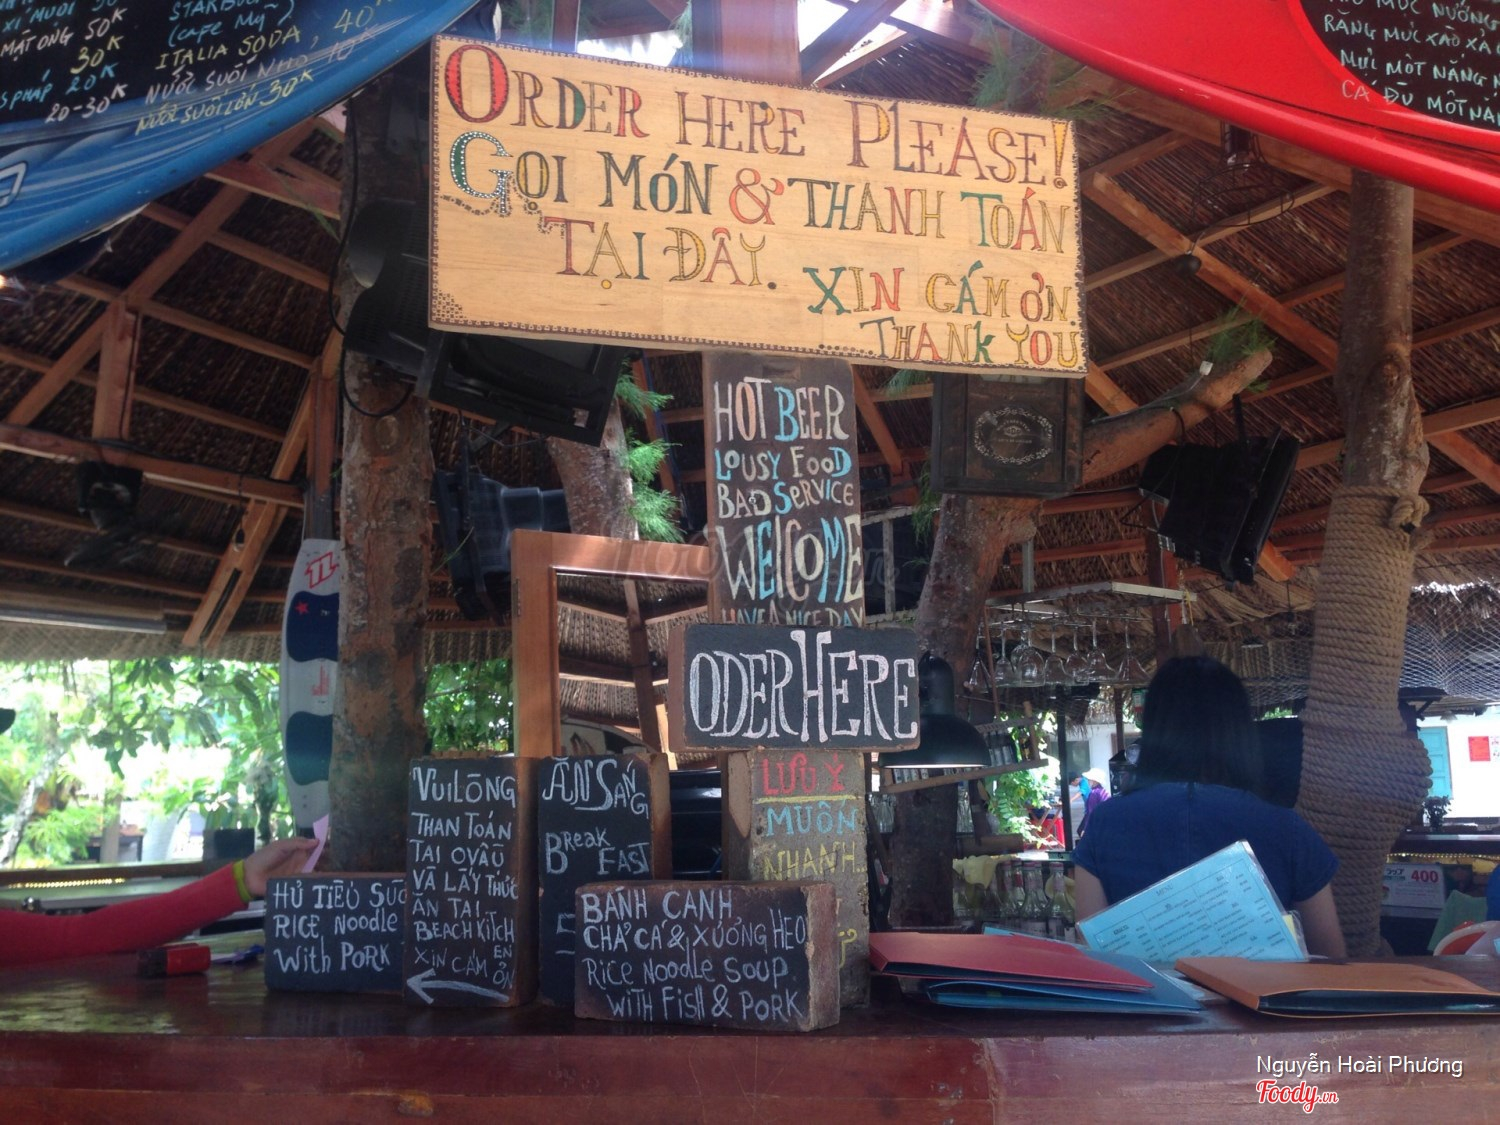 XÍ MUỘI
MẬT ONG 50K
30K
PHÁP 20K
20-30K
(Cafe Mỹ)
ITALIA SODA, 40K
NƯỚC SUỐI NHỎ 10K
NƯỚC SUỐI LỚN 30K
MỰC NƯỚNG
RĂNG MỰC XÀO XẢ
MỰC MỘT NẮNG
CÁ ĐÙ MỘT NẮ
ORDER HERE PLEASE!
GỌI MÓN & THANH TOÁN
TẠI ĐÂY.
XIN CÁM ƠN.
THANK YOU
HOT BEER
LOUSY FOOD
BAD SERVICE
WELCOME
HAVE A NICE DAY
ODER HERE
LƯU Ý
MUỐN
NHANH..
VUI LÒNG
THAN TOÁN
TẠI QUẦY
VÀ LẤY THỨC
ĂN TẠI
BEACH KITCH
EN
XIN CÁM ƠN
ĂN SÁNG
BREAK
FAST
HỦ TIẾU SƯỜ
RICE NOODLE
WITH PORK
BÁNH CANH
CHẢ CÁ & XƯƠNG HEO
RICE NOODLE SOUP
WITH FISH & PORK
MENU
400
Nguyễn Hoài Phương
Foody.vn